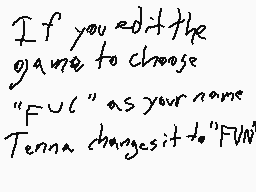 If you edit the
game to choose
"FUC" as your name
Tenna changes it to "FUN"